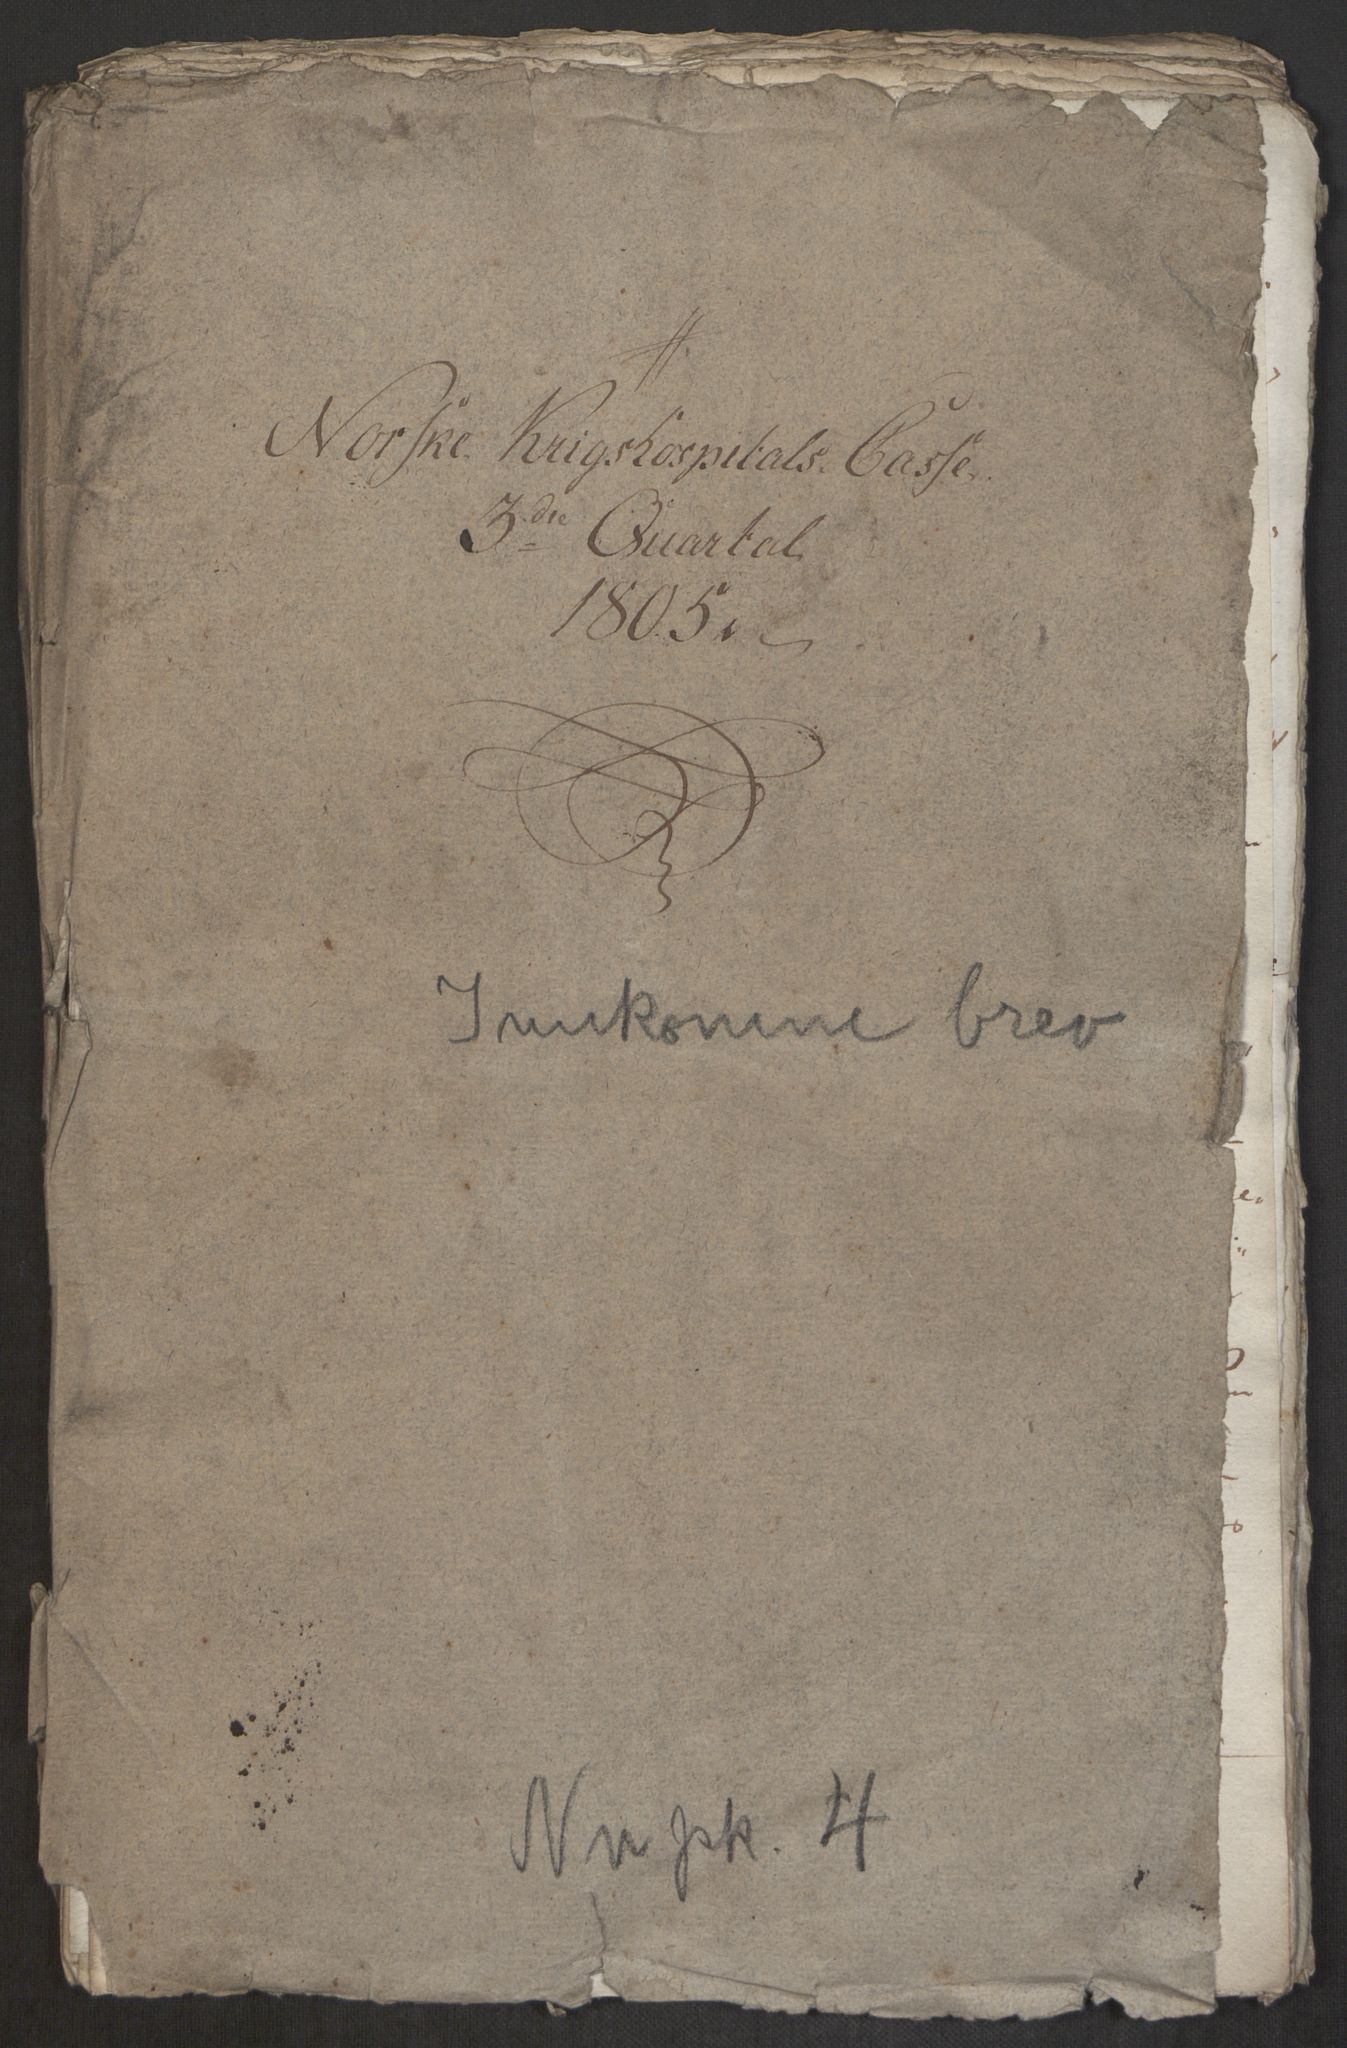 Norske Krigshospitals Casse
3die Quartal
1805.
Innkomne brev
Nr pk. 4